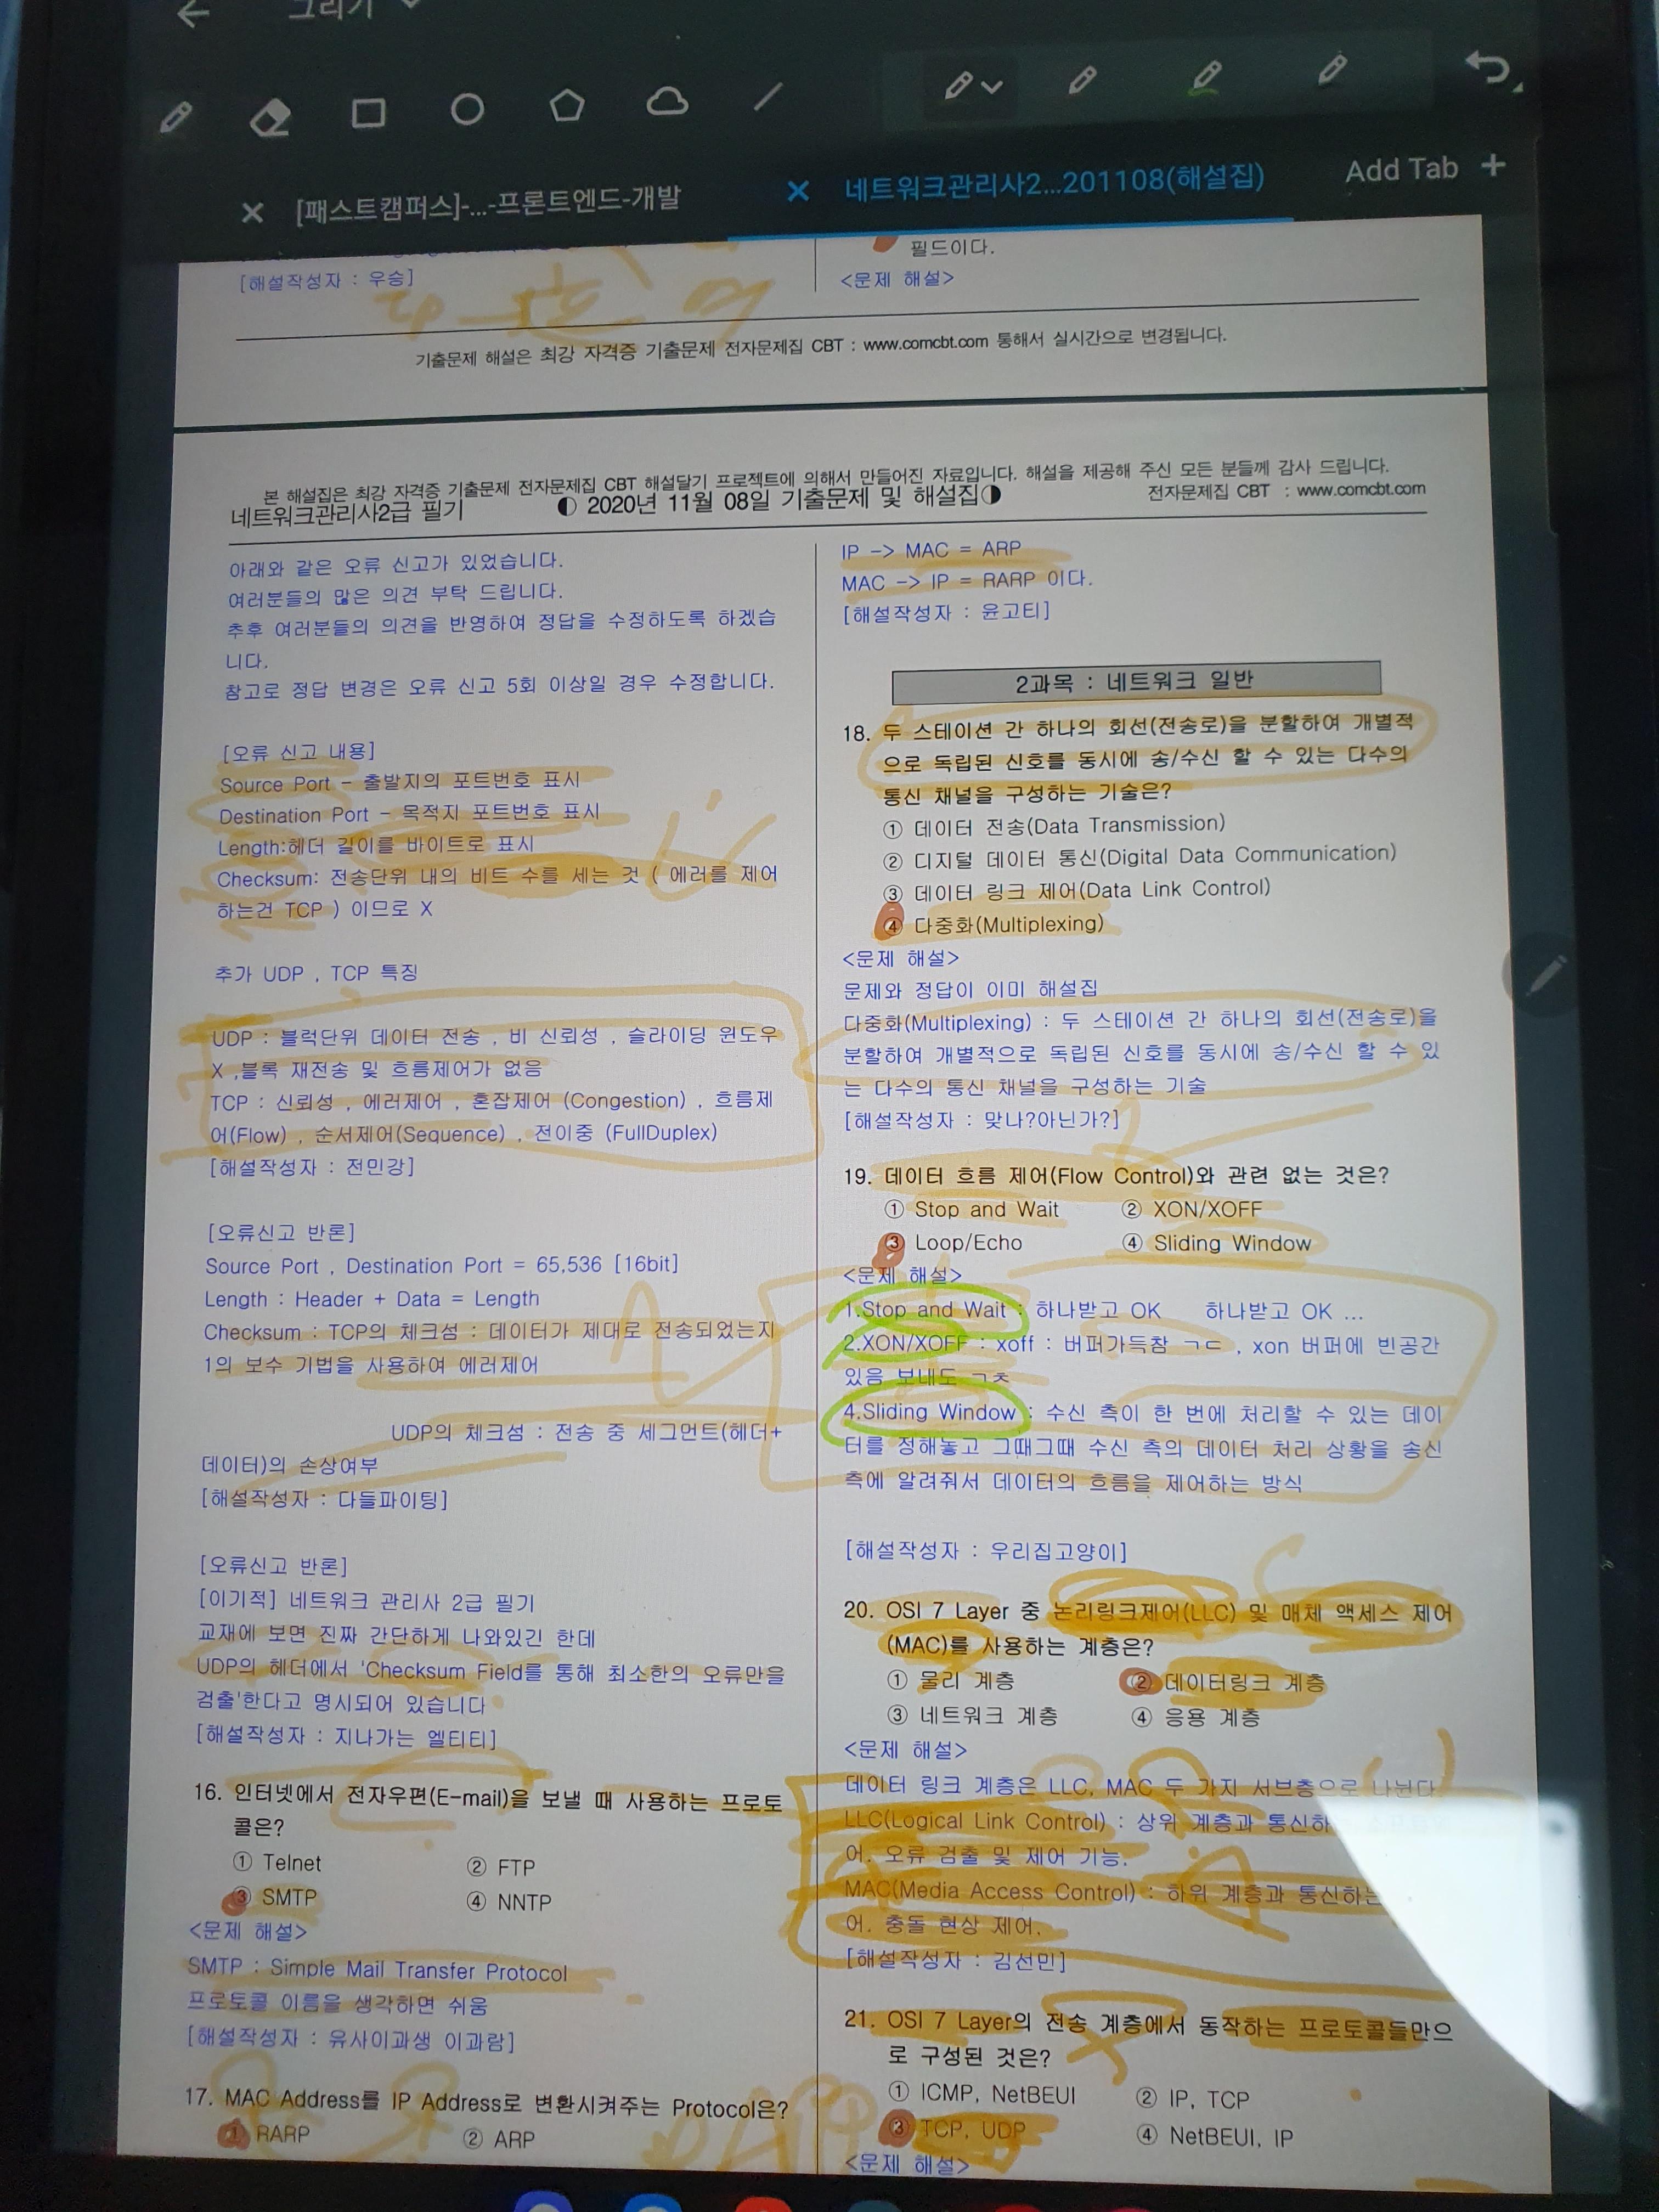 그리기
[패스트캠퍼스]-...-프론트엔드-개발
네트워크관리사2...201108(해설집)
Add Tab +
[해설작성자 : 우승]
필드이다.
<문제 해설>
기출문제 해설은 최강 자격증 기출문제 전자문제집 CBT : www.comcbt.com 통해서 실시간으로 변경됩니다.
본 해설집은 최강 자격증 기출문제 전자문제집 CBT 해설달기 프로젝트에 의해서 만들어진 자료입니다. 해설을 제공해 주신 모든 분들께 감사 드립니다.
네트워크관리사2급 필기
◐ 2020년 11월 08일 기출문제 및 해설집◑
전자문제집 CBT : www.comcbt.com
아래와 같은 오류 신고가 있었습니다.
여러분들의 많은 의견 부탁 드립니다.
추후 여러분들의 의견을 반영하여 정답을 수정하도록 하겠습
니다.
참고로 정답 변경은 오류 신고 5회 이상일 경우 수정합니다.
[오류 신고 내용]
Source Port - 출발지의 포트번호 표시
Destination Port - 목적지 포트번호 표시
Length:헤더 길이를 바이트로 표시
Checksum: 전송단위 내의 비트 수를 세는 것 ( 에러를 제어
하는건 TCP ) 이므로 X
추가 UDP , TCP 특징
UDP : 블럭단위 데이터 전송 , 비 신뢰성 , 슬라이딩 윈도우
X ,블록 재전송 및 흐름제어가 없음
TCP : 신뢰성 , 에러제어 , 혼잡제어 (Congestion) , 흐름제
어(Flow) , 순서제어(Sequence) , 전이중 (FullDuplex)
[해설작성자 : 전민강]
[오류신고 반론]
Source Port , Destination Port = 65,536 [16bit]
Length : Header + Data = Length
Checksum : TCP의 체크섬 : 데이터가 제대로 전송되었는지
1의 보수 기법을 사용하여 에러제어
UDP의 체크섬 : 전송 중 세그먼트(헤더+
데이터)의 손상여부
[해설작성자 : 다들파이팅]
[오류신고 반론]
[이기적] 네트워크 관리사 2급 필기
교재에 보면 진짜 간단하게 나와있긴 한데
UDP의 헤더에서 'Checksum Field를 통해 최소한의 오류만을
검출'한다고 명시되어 있습니다
[해설작성자 : 지나가는 엘티티]
16. 인터넷에서 전자우편(E-mail)을 보낼 때 사용하는 프로토
콜은?
① Telnet ② FTP
③ SMTP ④ NNTP
<문제 해설>
SMTP : Simple Mail Transfer Protocol
프로토콜 이름을 생각하면 쉬움
[해설작성자 : 유사이과생 이과람]
17. MAC Address를 IP Address로 변환시켜주는 Protocol은?
① RARP ② ARP
IP -> MAC = ARP
MAC -> IP = RARP 이다.
[해설작성자 : 윤고티]
2과목 : 네트워크 일반
18. 두 스테이션 간 하나의 회선(전송로)을 분할하여 개별적
으로 독립된 신호를 동시에 송/수신 할 수 있는 다수의
통신 채널을 구성하는 기술은?
① 데이터 전송(Data Transmission)
② 디지털 데이터 통신(Digital Data Communication)
③ 데이터 링크 제어(Data Link Control)
④ 다중화(Multiplexing)
<문제 해설>
문제와 정답이 이미 해설집
다중화(Multiplexing) : 두 스테이션 간 하나의 회선(전송로)을
분할하여 개별적으로 독립된 신호를 동시에 송/수신 할 수 있
는 다수의 통신 채널을 구성하는 기술
[해설작성자 : 맞나?아닌가?]
19. 데이터 흐름 제어(Flow Control)와 관련 없는 것은?
① Stop and Wait ② XON/XOFF
③ Loop/Echo ④ Sliding Window
<문제 해설>
1.Stop and Wait : 하나받고 OK 하나받고 OK ...
2.XON/XOFF : xoff : 버퍼가득참 ㄱㄷ , xon 버퍼에 빈공간
있음 보내도 ㄱㅊ
4.Sliding Window : 수신 측이 한 번에 처리할 수 있는 데이
터를 정해놓고 그때그때 수신 측의 데이터 처리 상황을 송신
측에 알려줘서 데이터의 흐름을 제어하는 방식
[해설작성자 : 우리집고양이]
20. OSI 7 Layer 중 논리링크제어(LLC) 및 매체 액세스 제어
(MAC)를 사용하는 계층은?
① 물리 계층 ② 데이터링크 계층
③ 네트워크 계층 ④ 응용 계층
<문제 해설>
데이터 링크 계층은 LLC, MAC 두 가지 서브층으로 나뉜다.
LLC(Logical Link Control) : 상위 계층과 통신하
어. 오류 검출 및 제어 기능.
MAC(Media Access Control) : 하위 계층과 통신하는
어. 충돌 현상 제어.
[해설작성자 : 김선민]
21. OSI 7 Layer의 전송 계층에서 동작하는 프로토콜들만으
로 구성된 것은?
① ICMP, NetBEUI ② IP, TCP
③ TCP, UDP ④ NetBEUI, IP
<문제 해설>